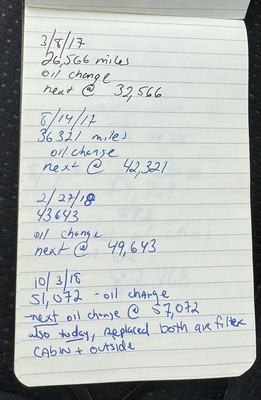 3/8/17
26,566 miles
oil change
next @ 32,566
8/14/17
36321 miles
oil change
next @ 42,321
2/27/18
43643
oil change
next @ 49,643
10/3/18
51,072 - oil change
next oil change @ 57,072
also today, replaced both air filter
CABIN + outside